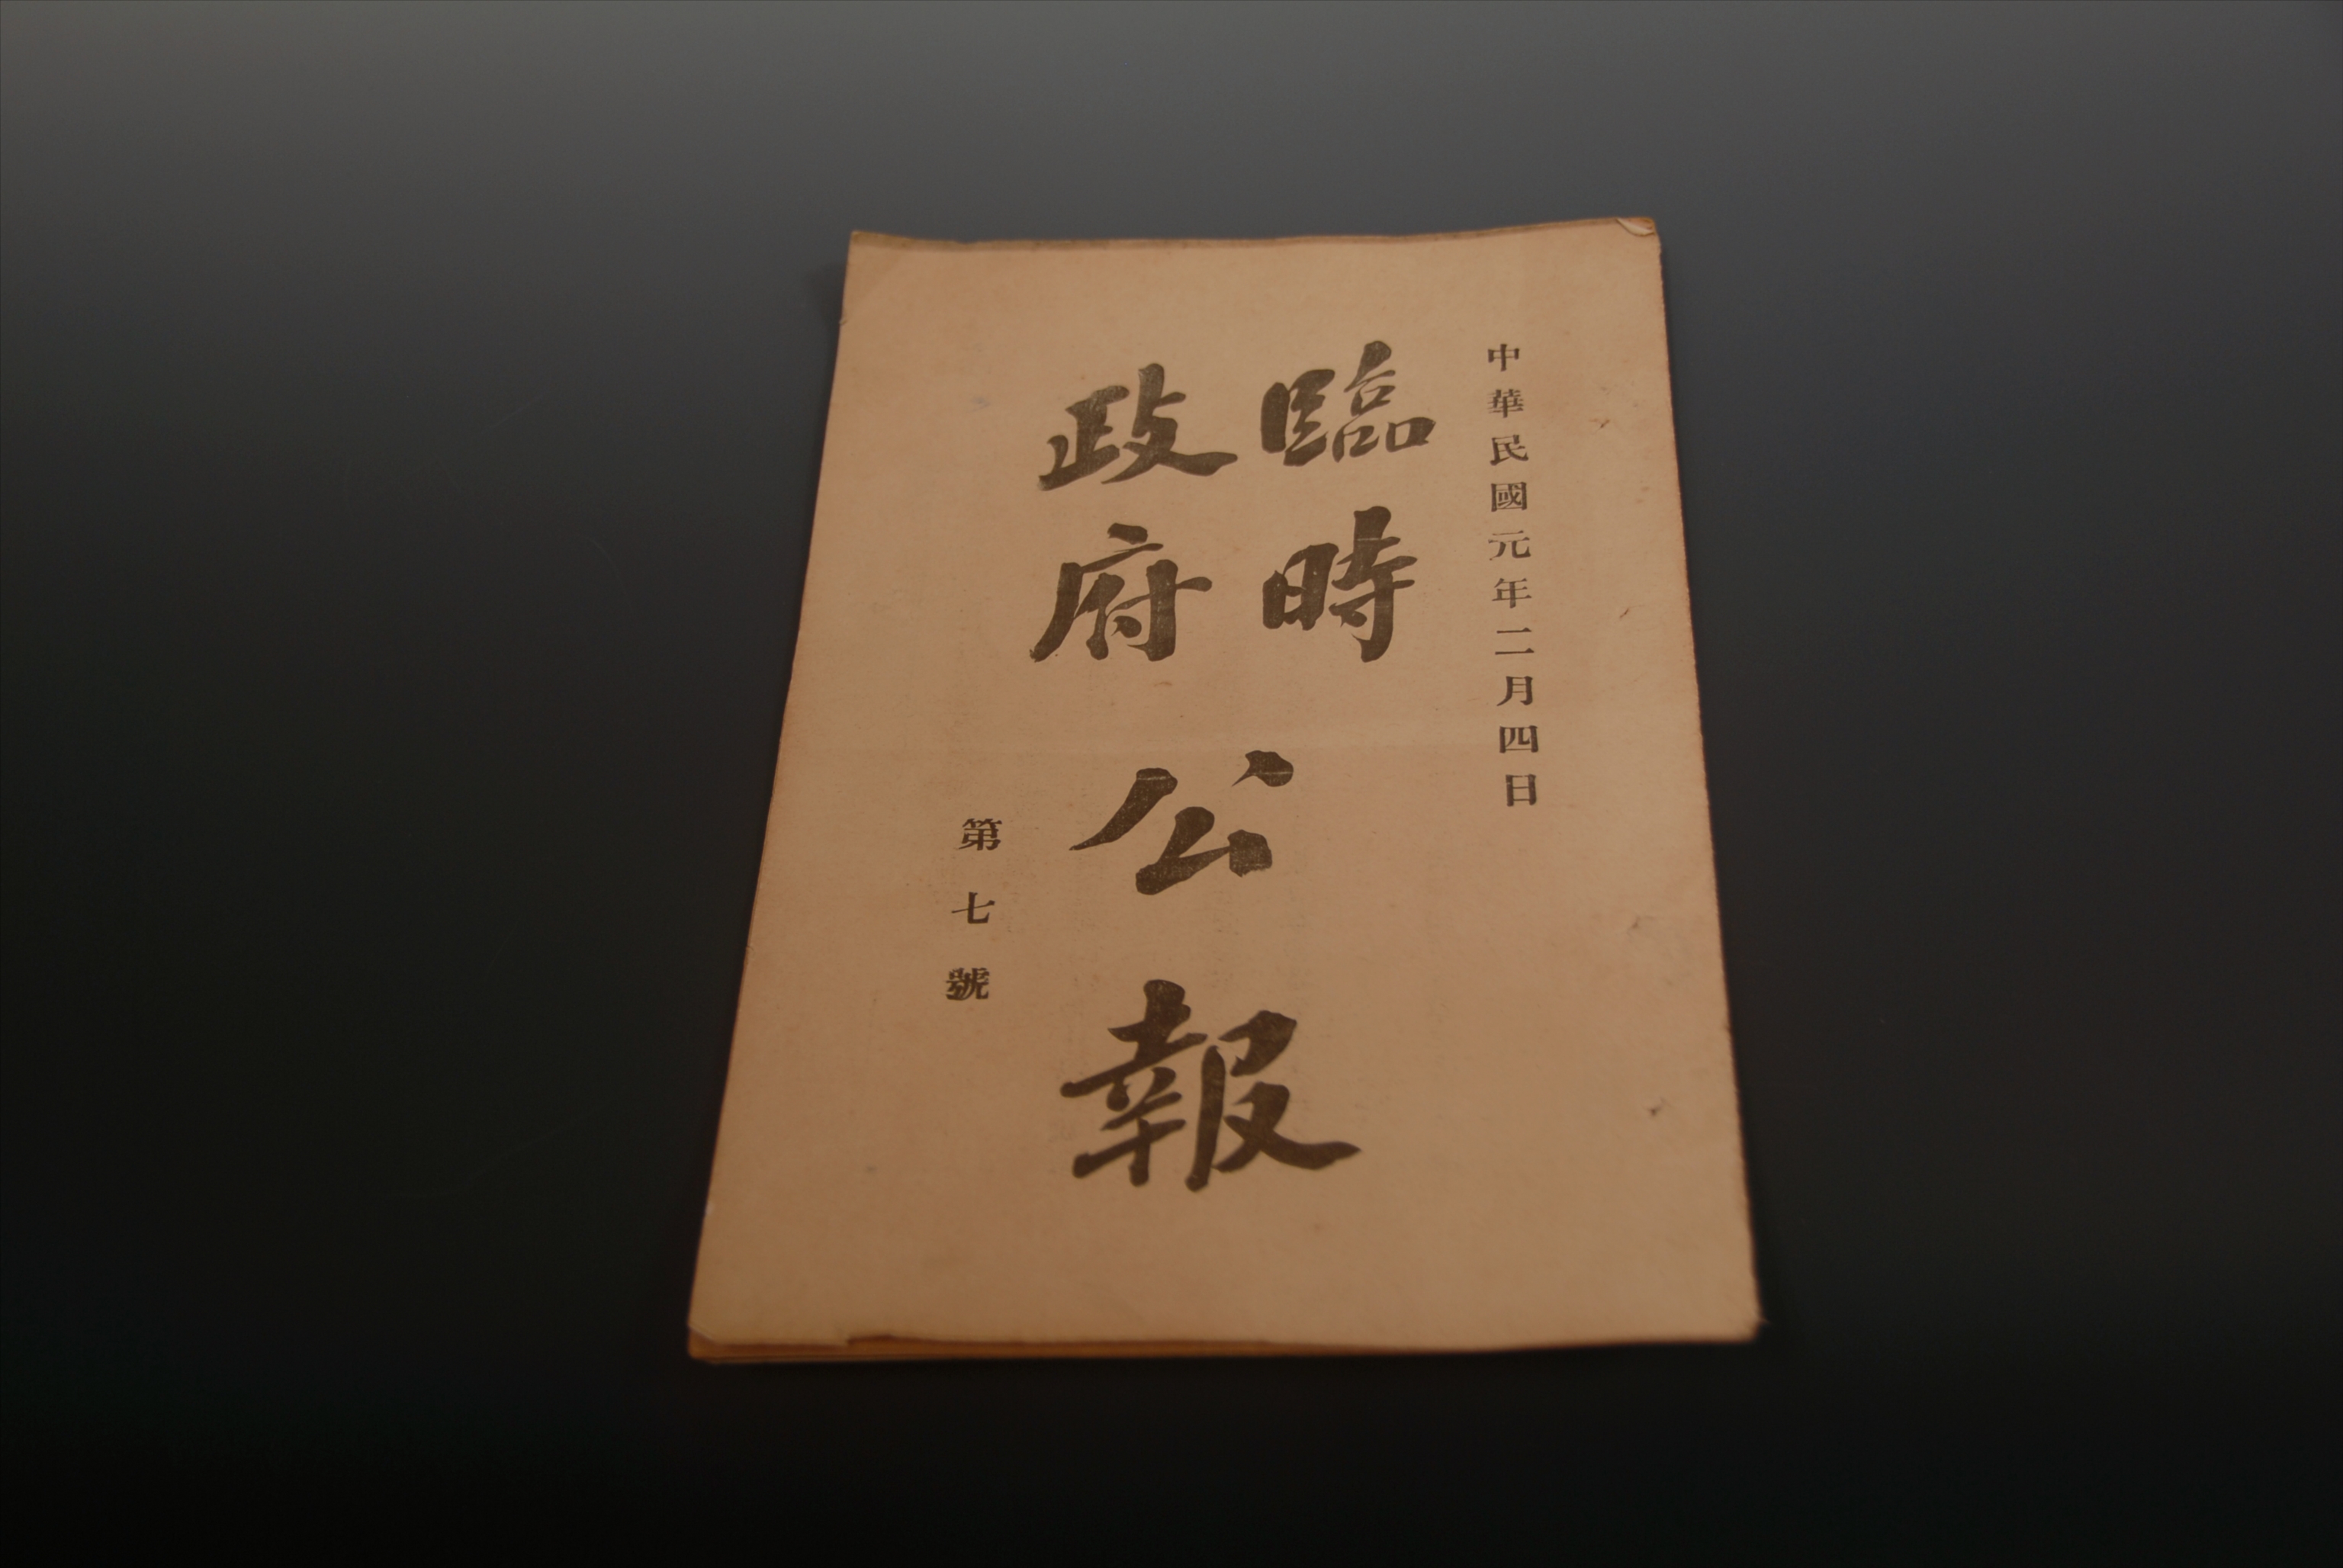 中華民國元年二月四日
臨時
政府
公報
第七號